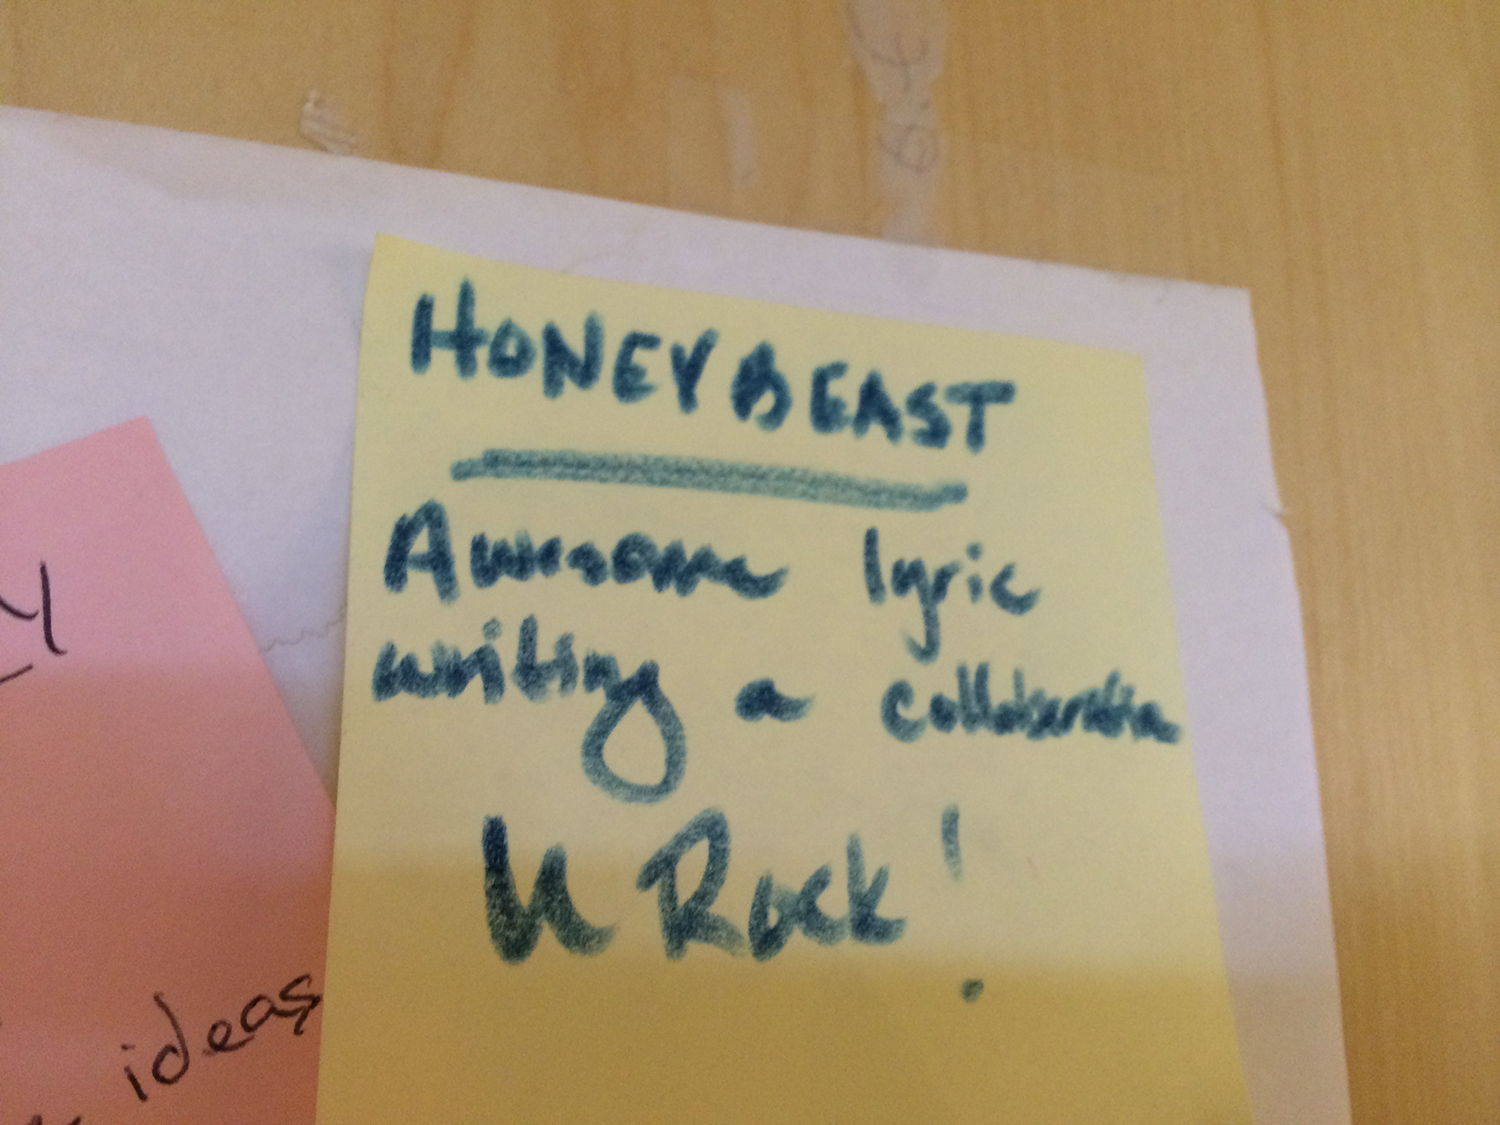 HONEYBEAST
Awesome lyric
writing a collaboration
U Rock!
ideas